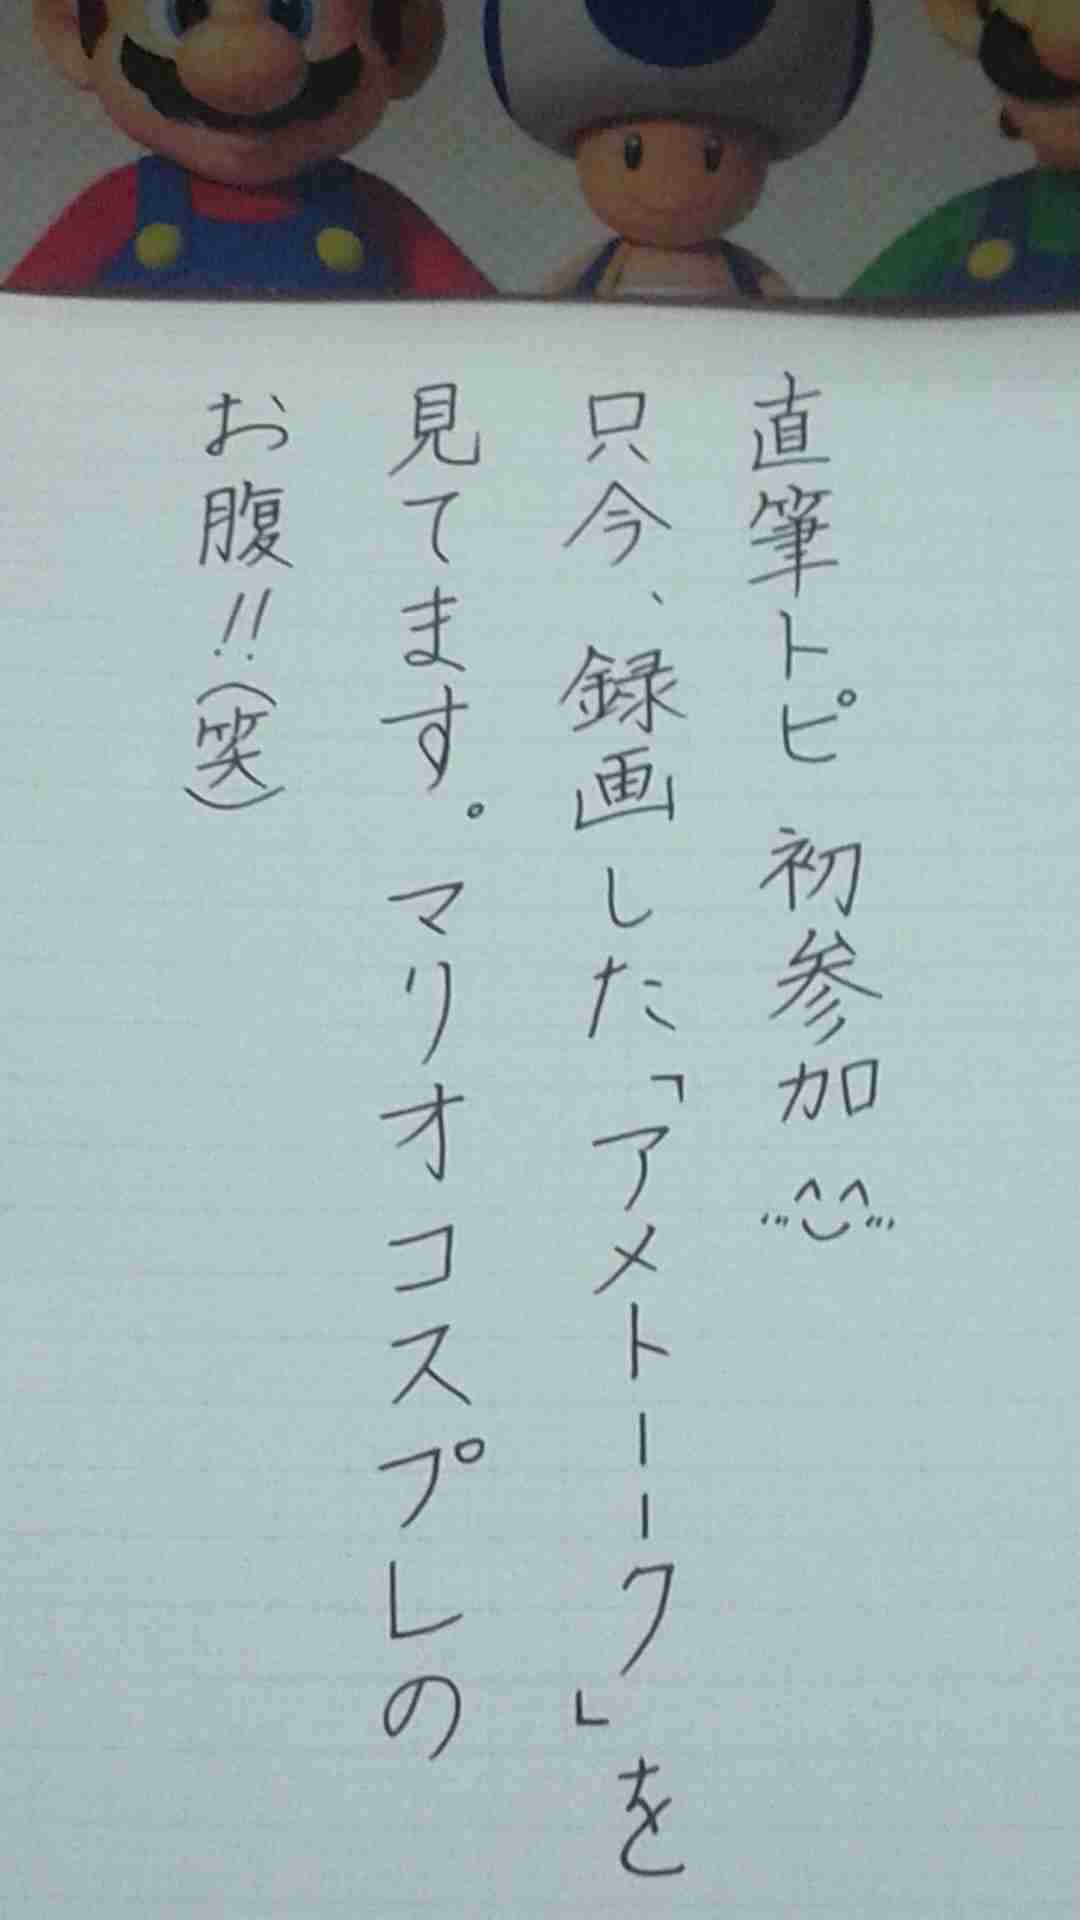 直筆トピ 初参加
只今、録画した「アメトーーク」を
見てます。マリオコスプレの
お腹!!(笑)